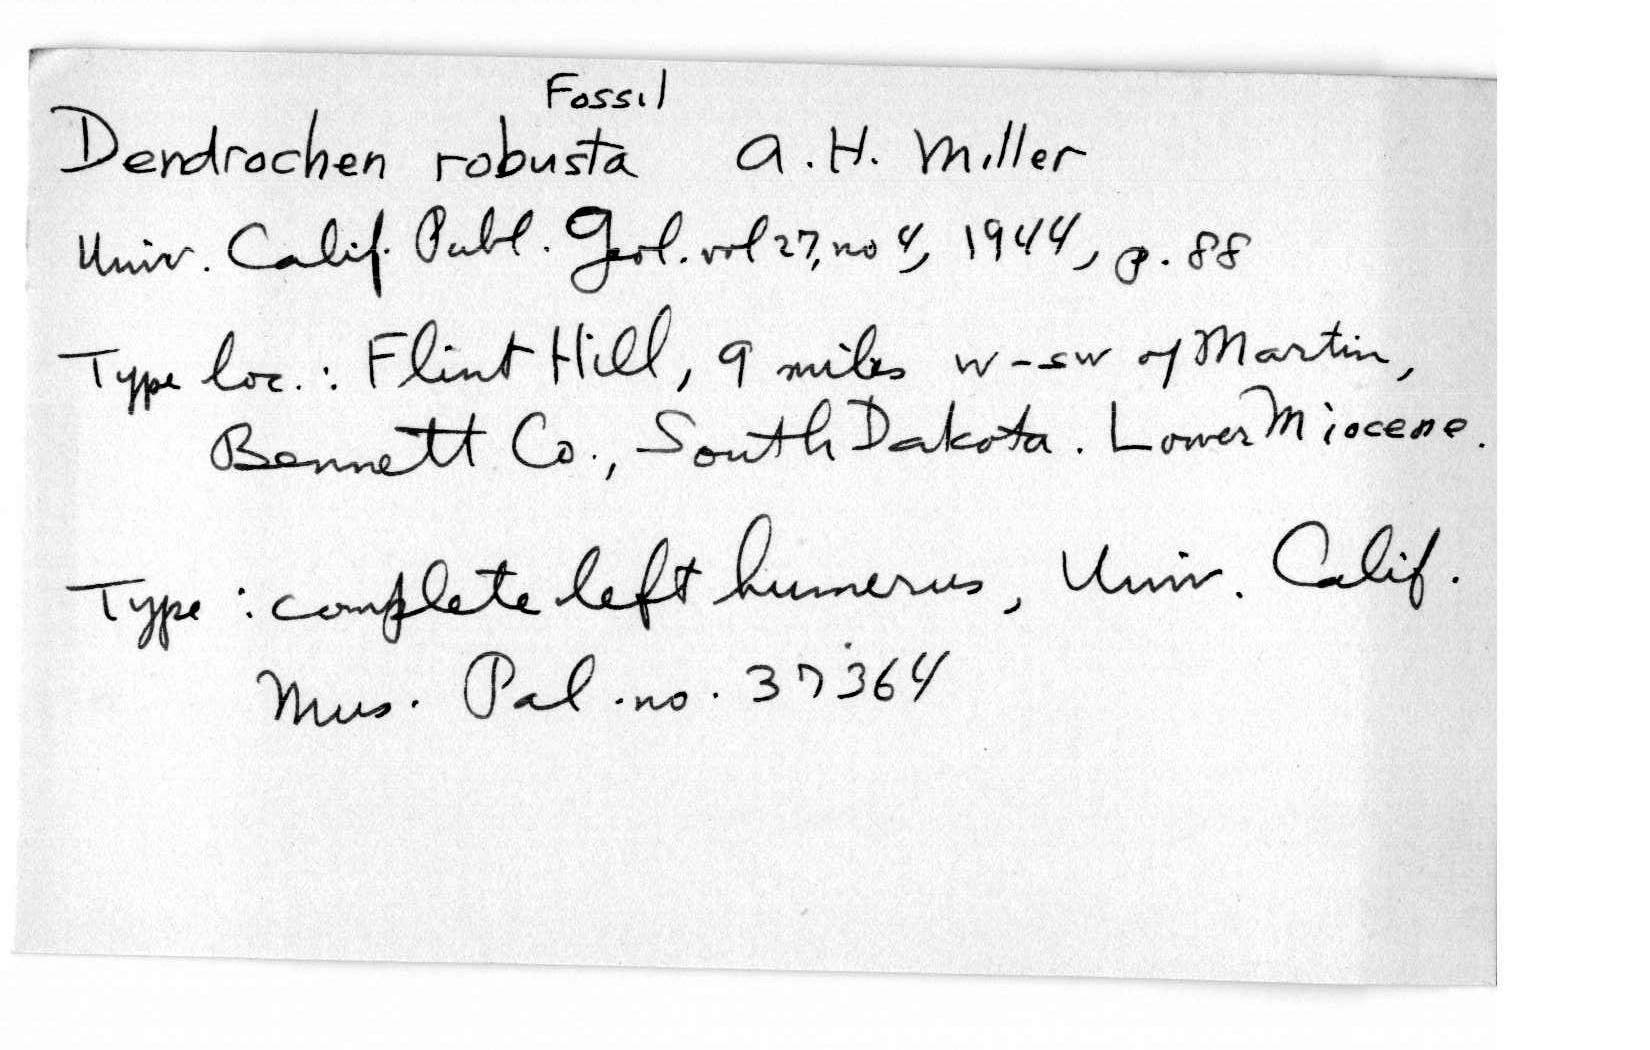 Fossil
Dendrochen robusta A. H. Miller
Univ. Calif. Publ. Geol. vol 27, no 4, 1944, p. 88
Type loc.: Flint Hill, 9 miles w-sw of Martin,
Bennett Co., South Dakota. Lower Miocene.
Type: complete left humerus, Univ. Calif.
Mus. Pal. no. 37364